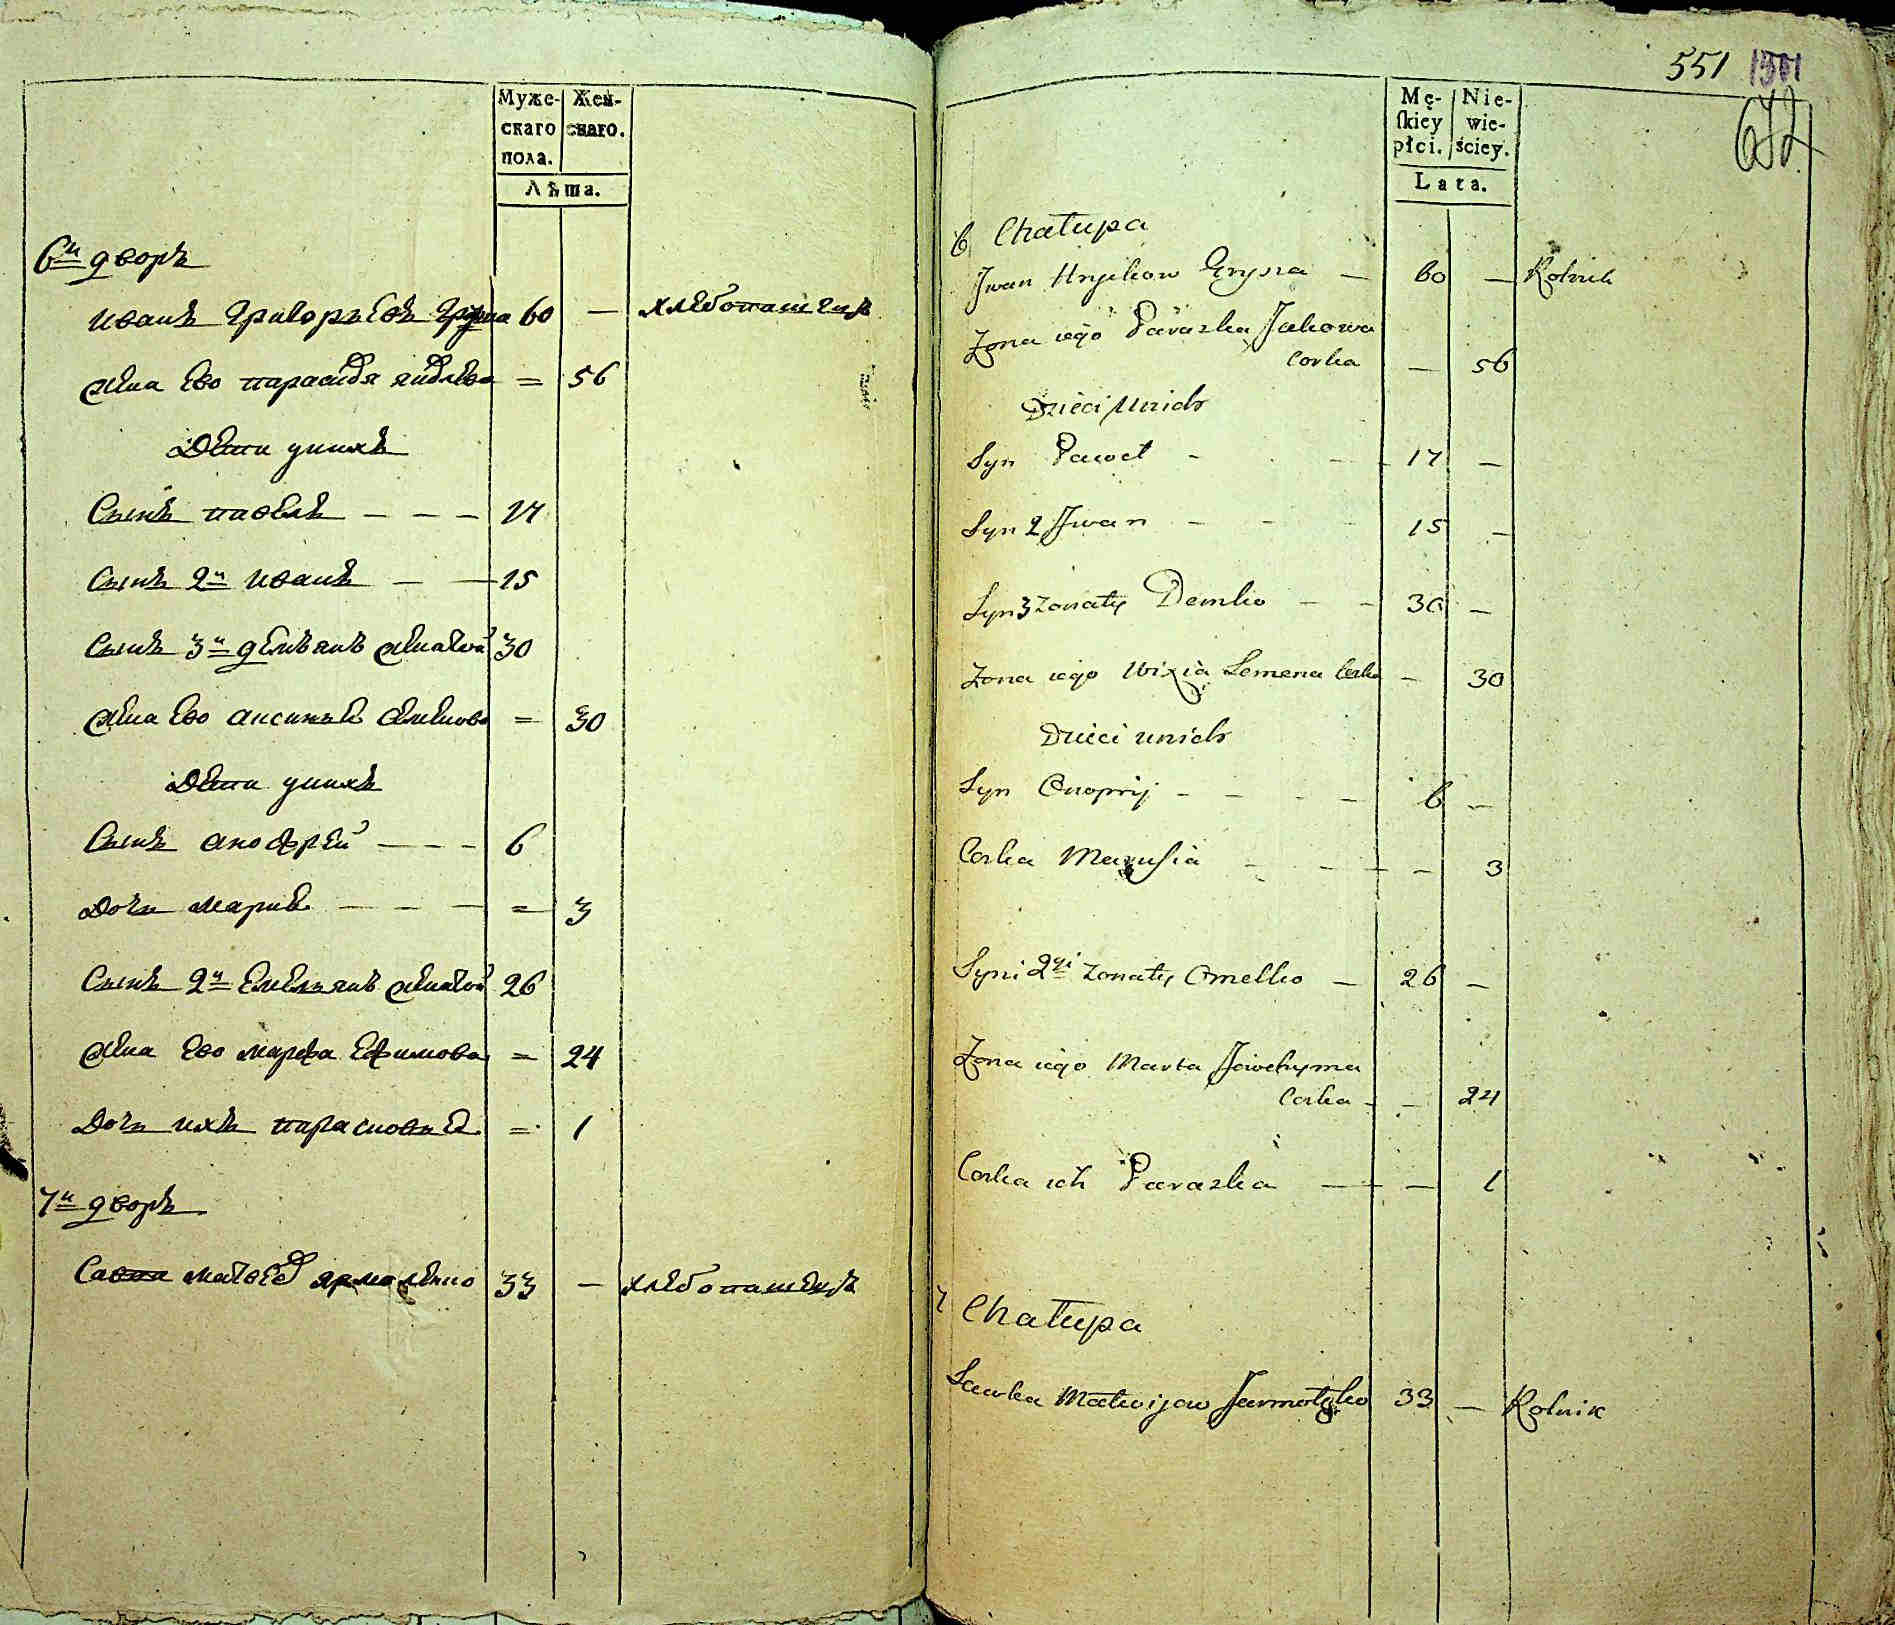 Муже-
скаго
пола.
Жен-
скаго.
Лѣта.
6й дворъ
Иванъ Григорьевъ Грыша 60 — хлебопашецъ
жена ево параскевя яковлева = 56
Дети у нихъ
Сынъ павелъ — — — 17
Сынъ 2й иванъ — — 15
Сынъ 3й демьянъ женатой 30
жена ево аксинья семенова = 30
Дети у нихъ
Сынъ анофрей — — — 6
Дочь мария — — — = 3
Сынъ 2й емельянъ женатой 26
жена ево марфа ефимова = 24
Дочь ихъ парасковия = 1
7й дворъ
Савка матвеев ярмоленко 33 — хлебопашецъ
551 1501
Mę-
skiey
płci.
Nie-
wie-
ściey.
Lata.
6 Chałupa
Jwan Hryhow Grysza — 60 — Rolnik
Zona iego Parazka Jakowa
Corka — 56
Dzieci u nich
Syn Paweł - - - 17 —
Syn 2 Jwan - - - 15 —
Syn 3 zonaty Demko - - 30 —
Zona iego Wixia Semena Corka — 30
Dzieci u nich
Syn Onoprij - - - - 6 —
Corka Marusia - - - - 3
Syn 2gi zonaty Omelko — 26 —
Zona iego Marta Jowchyma
Corka - — 24
Corka ich Parazka — — 1
7 Chałupa
Sawka Matwijow Jarmołęko 33 — Rolnik